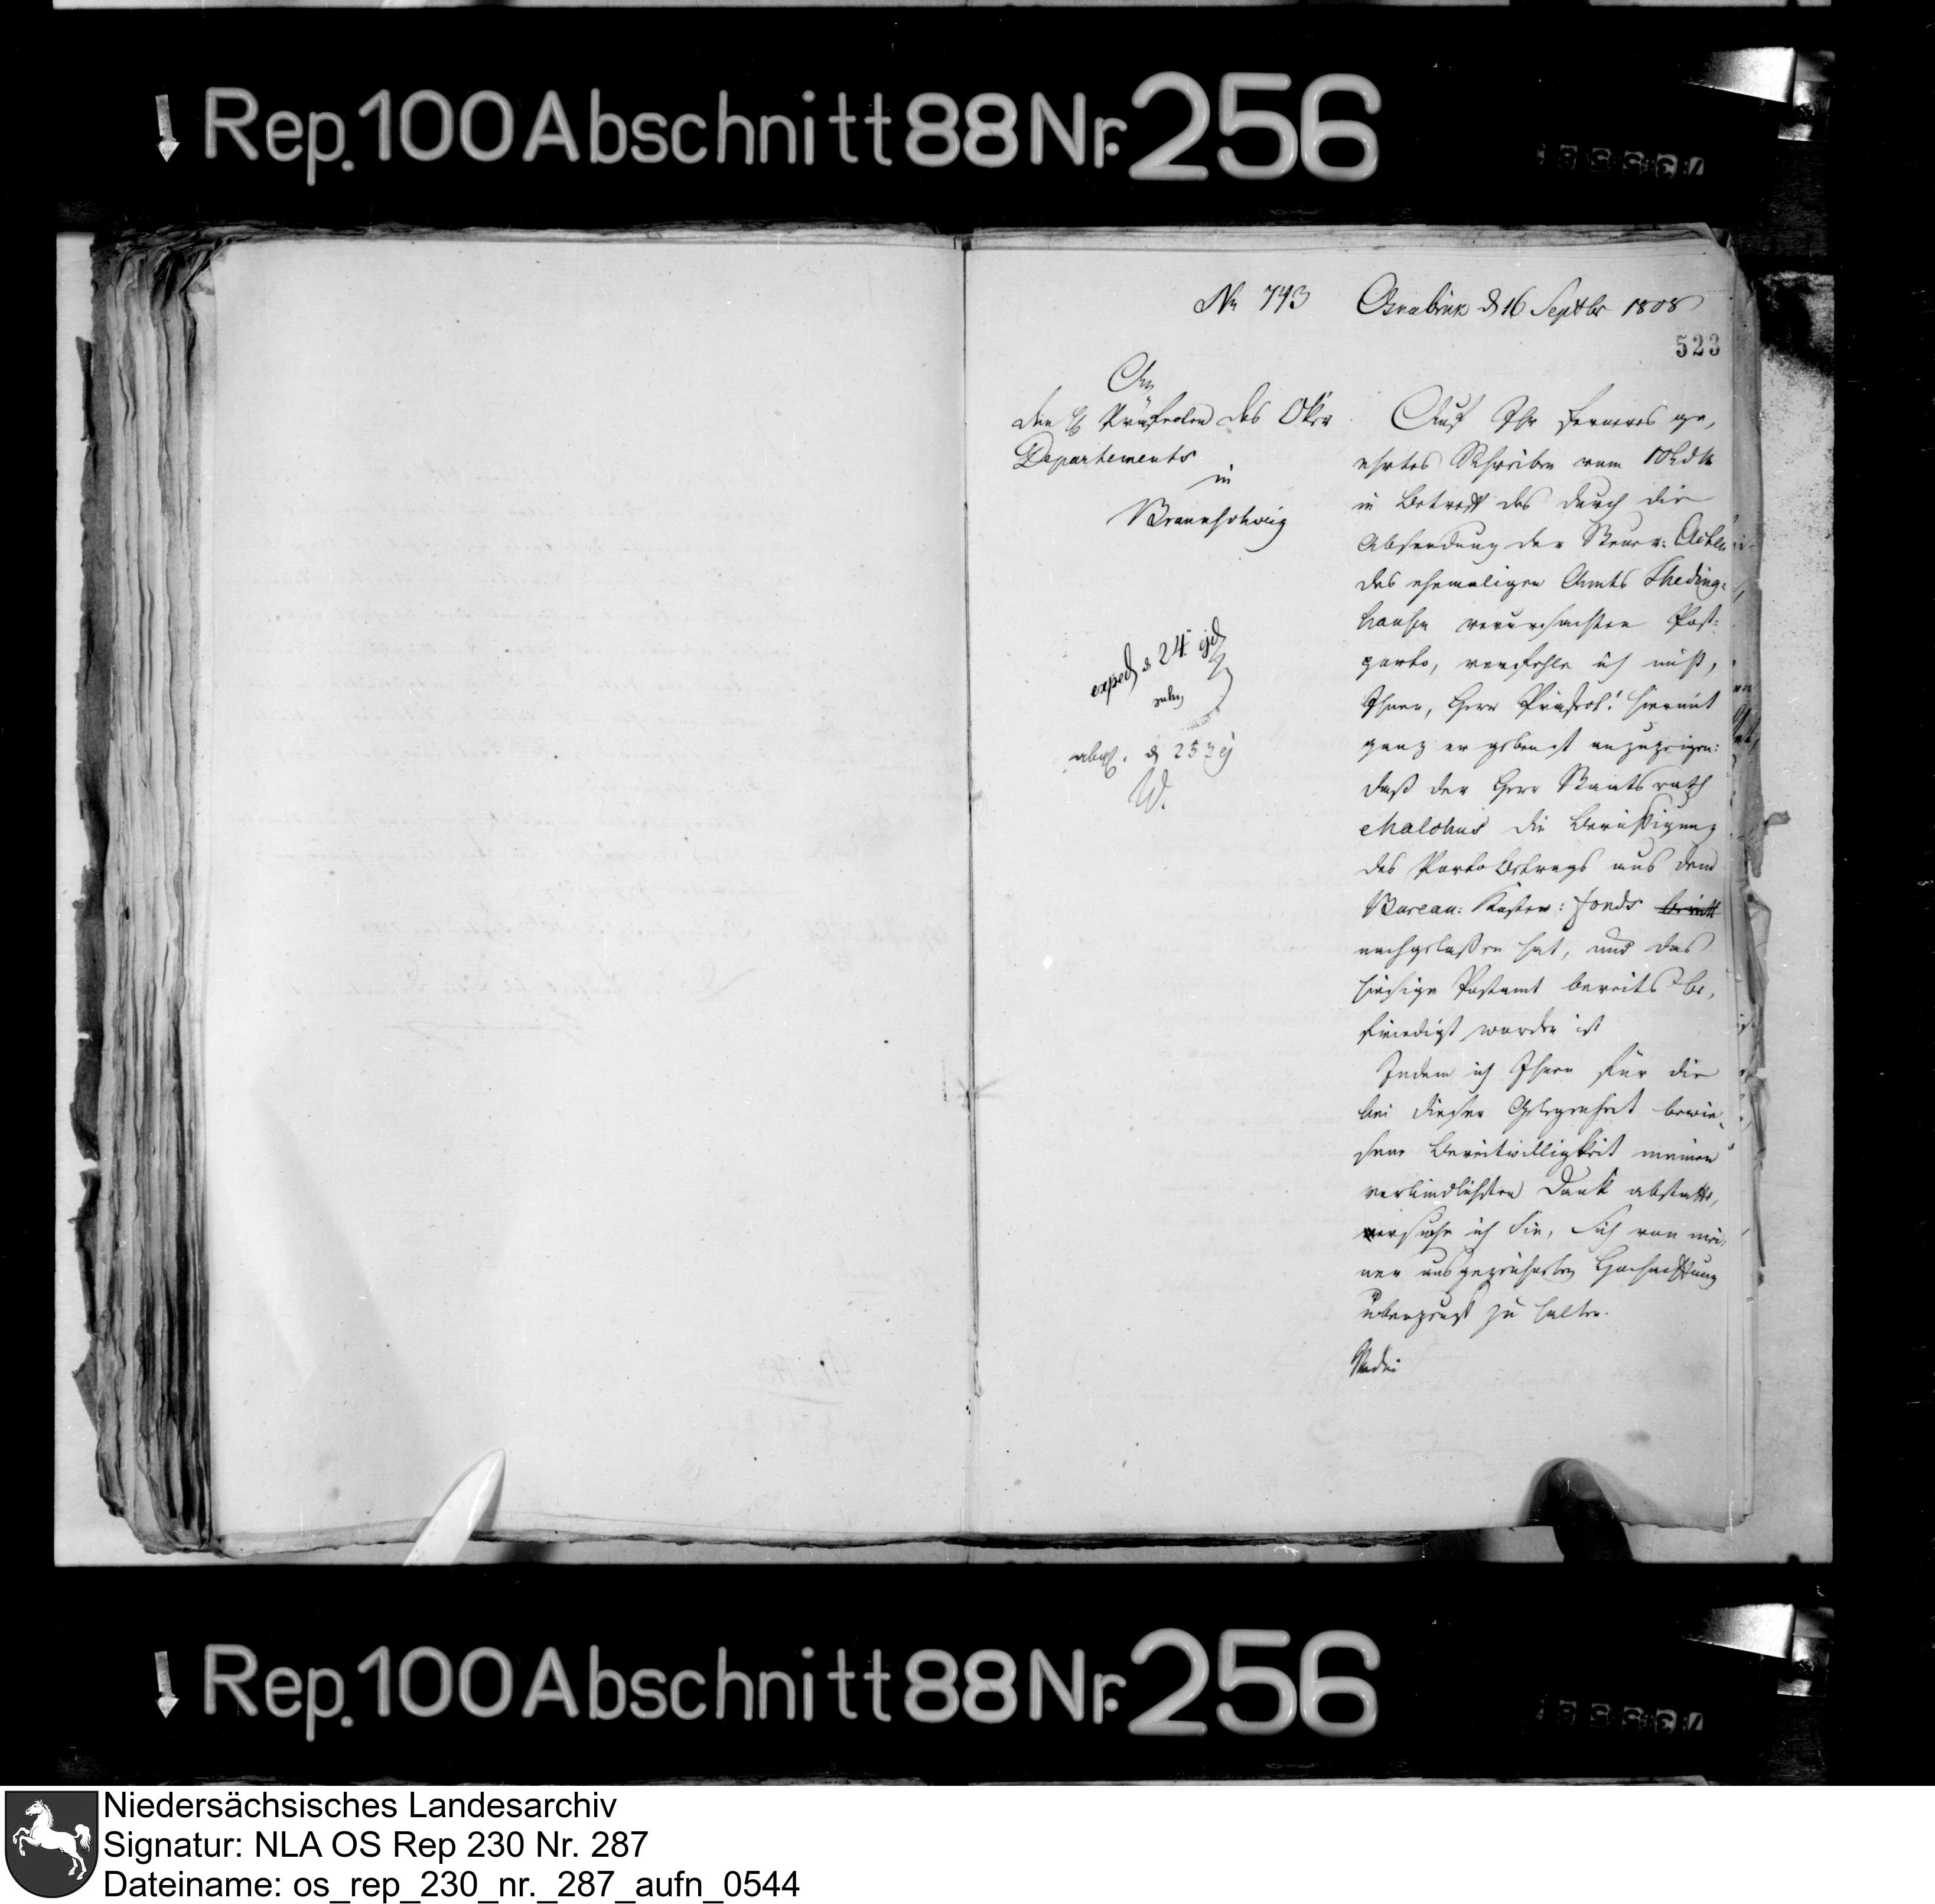 Rep. 100 Abschnitt 88 Nr. 256
No 743
Osnabrük d 16 Septbr 1808
523
An
den H Präfecten des Oker
Departements
in
Braunschweig
exped d 24.
d 25
W.
Auf Ihr ferneres ge,
ehrtes Schreiben vom 10t d M
in Betreff des durch die
Absendung der Steuer: Acten
des ehemaligen Amts Theding:
hausen verursachten Post:
porto, verfehle ich nicht,
Ihnen, Herr Präfect! hiermit
ganz ergebenst anzuzeigen:
daß der Herr Staatsrath
Malchus die Berichtigung
des Porto Betrags aus dem
Bureau: Kosten: fonds
nachgelaßen hat, und das
hiesige Postamt bereits be,
friedigt worden ist
Indem ich Ihnen für die
bei dieser Gelegenheit bewie,
sene Bereitwilligkeit meinen
verbindlichsten Dank abstatte,
ersuche ich Sie, Sich von mei:
ner ausgezeichnesten Hochachtung
überzeugt zu halten.
Rep. 100 Abschnitt 88 Nr. 256
Niedersächsisches Landesarchiv
Signatur: NLA OS Rep 230 Nr. 287
Dateiname: os_rep_230_nr._287_aufn_0544